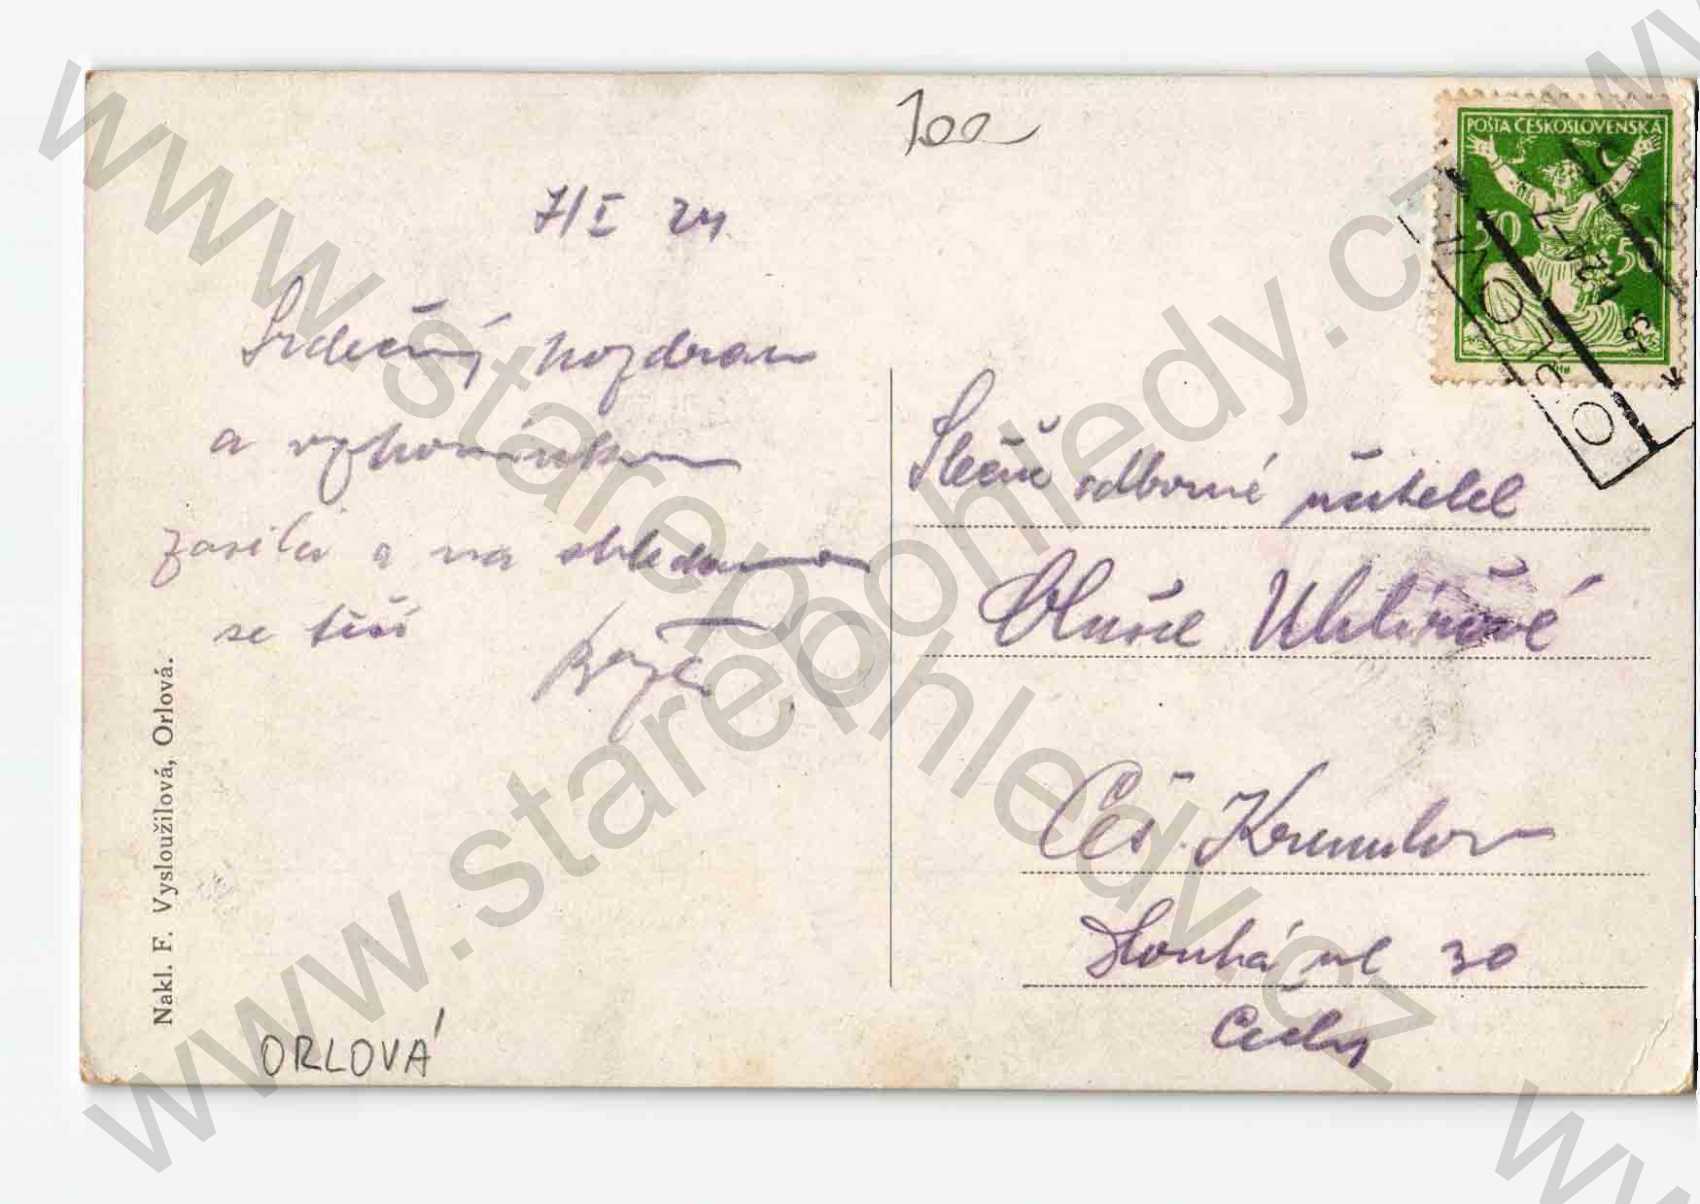 100
7/I 24.
Srdečný pozdrav
a vzpomínkou
zasílá a na shledanou
se těší
POŠTA ČESKOSLOVENSKÁ
50 50
Slečně odborné učitelce
Uhlířové
Čes. Krumlov
Dlouhá ul 30
Čechy
Nakl. F. Vysloužilová, Orlová.
ORLOVÁ
www.starepohledy.cz
www.starepohledy.cz